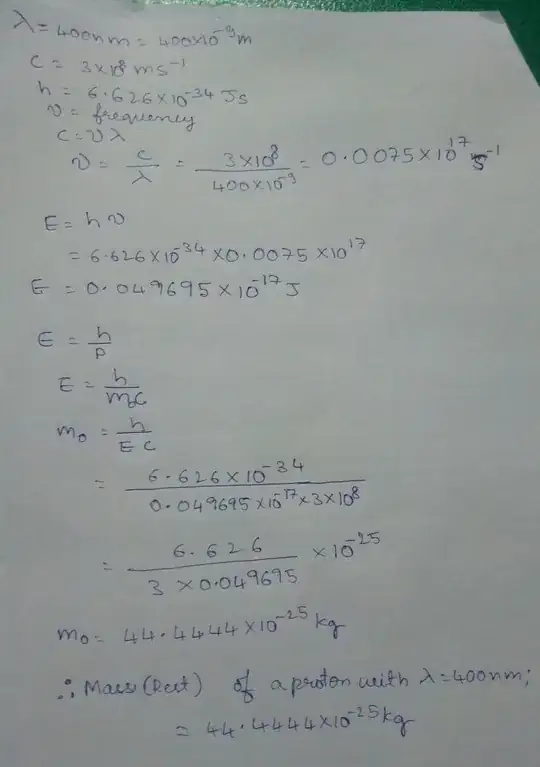 λ = 400nm = 400×10⁻⁹m
C = 3×10⁸ ms⁻¹
h = 6.626×10⁻³⁴ Js
ν = frequency
C = νλ
ν = c/λ = 3×10⁸/400×10⁻⁹ = 0.0075×10¹⁷ s⁻¹
E = hν
= 6.626×10⁻³⁴ ×0.0075×10¹⁷
E = 0.049695×10⁻¹⁷J
E = h/p
E = h/m₀c
m₀ = h/EC
= 6.626×10⁻³⁴/0.049695×10⁻¹⁷×3×10⁸
= 6.626/3×0.049695 ×10⁻²⁵
m₀ = 44.4444×10⁻²⁵ kg
∴ Mass (Rest) of a proton with λ=400nm;
= 44.4444×10⁻²⁵kg